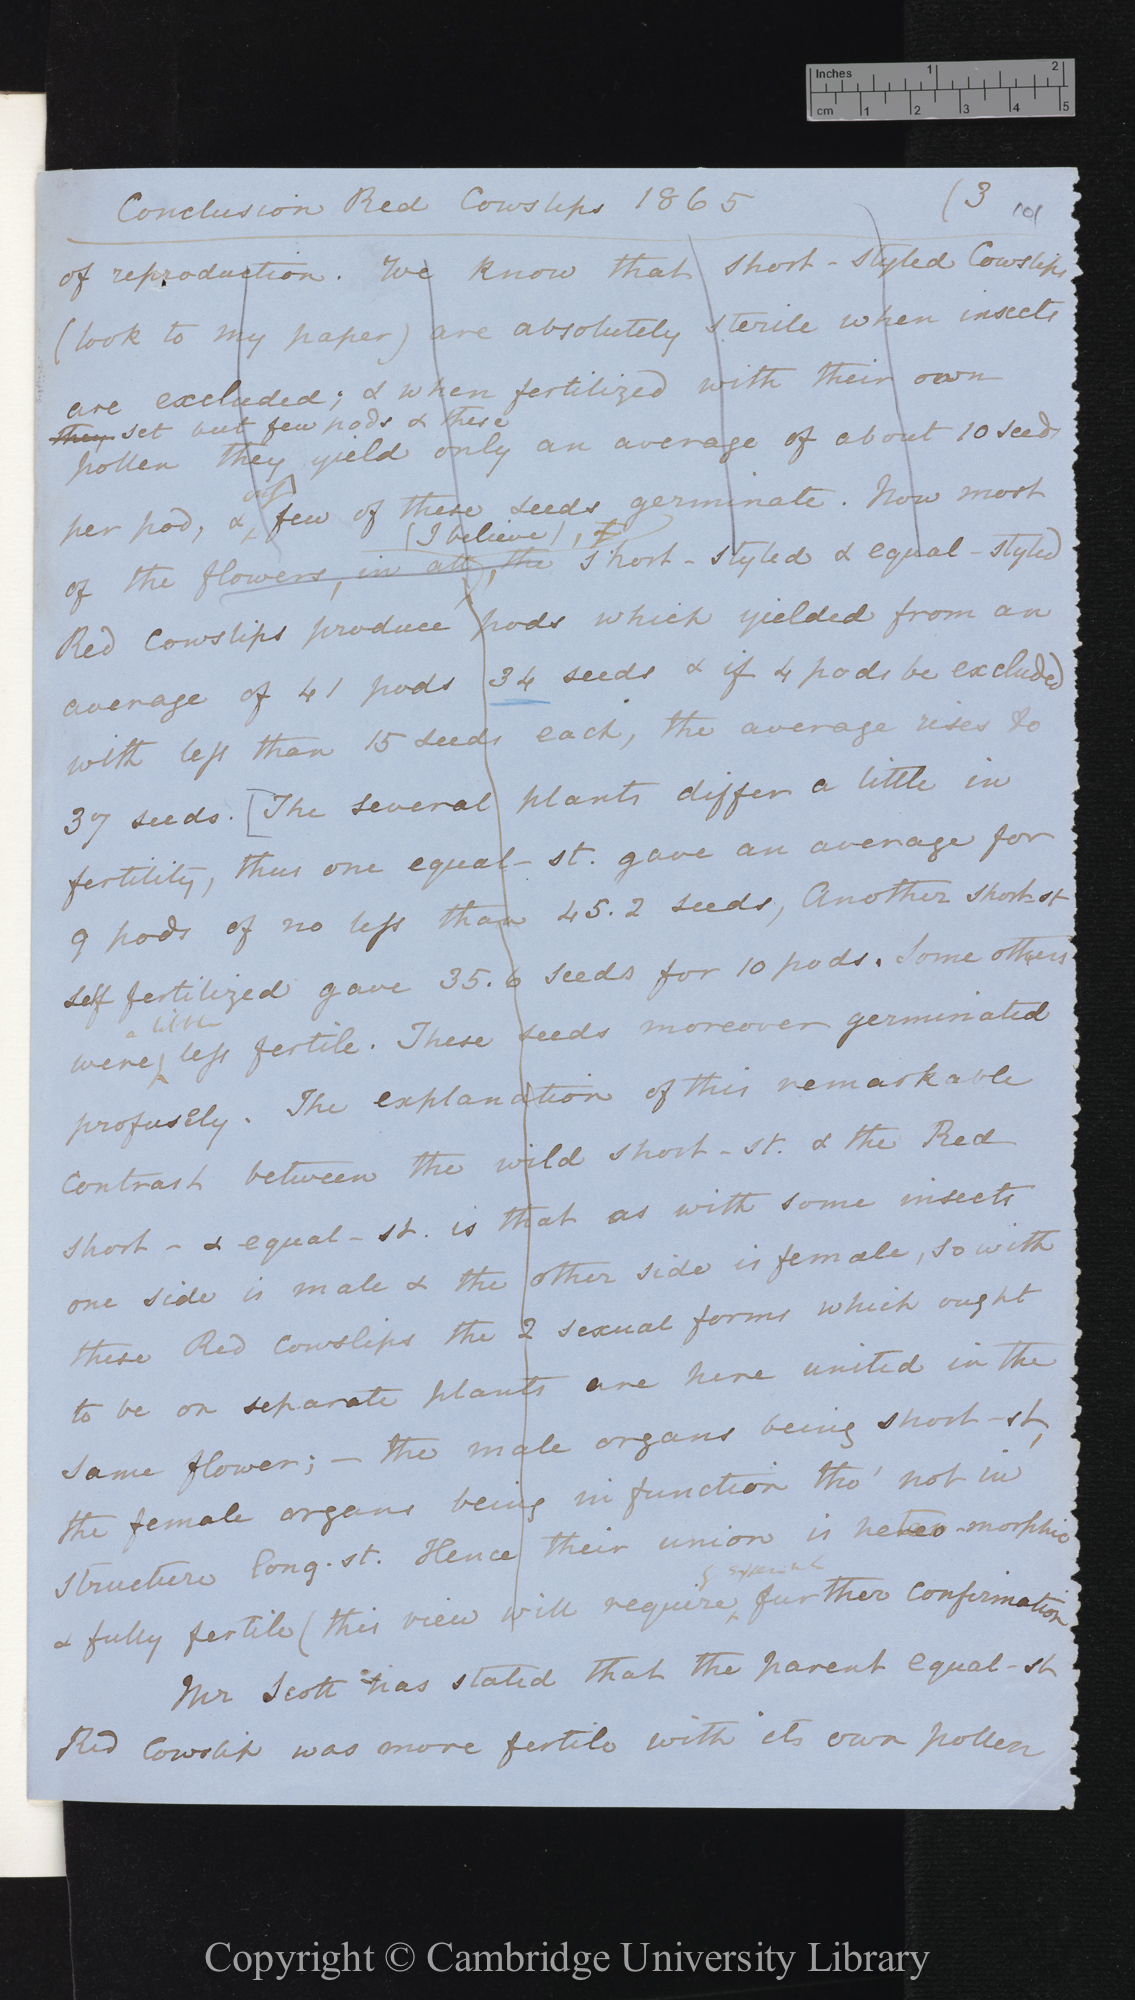 Inches 1 2
cm 1 2 3 4 5
Conclusion Red Cowslips 1865 (3 101
of reproduction. We know that short-styled Cowslips
(look to my paper) are absolutely sterile when insects
are excluded; & when fertilized with their own
they set but few pods & these
pollen they yield only an average of about 10 seeds
per pod, & only few of these seeds germinate. Now most
(I believe),
of the flowers, in all, the short-styled & equal-styled
Red Cowslips produce pods which yielded from an
average of 41 pods 34 seeds & if 4 pods be excluded
with less than 15 seeds each, the average rises to
37 seeds. [The several plants differ a little in
fertility, thus one equal-st. gave an average for
9 pods of no less than 45.2 seeds, Another short-st
self fertilized gave 35.6 seeds for 10 pods. Some others
a little
were less fertile. These seeds moreover germinated
profusely. The explanation of this remarkable
contrast between the wild short-st. & the Red
short- & equal-st. is that as with some insects
one side is male & the other side is female, so with
these Red Cowslips the 2 sexual forms which ought
to be on separate plants are here united in the
same flower; — the male organs being short-st,
the female organs being in function tho' not in
structure long-st. Hence their union is hetero-morphic
& fully fertile (this view will require further confirmation
Mr Scott has stated that the parent equal-st
Red Cowslip was more fertile with its own pollen
Copyright © Cambridge University Library